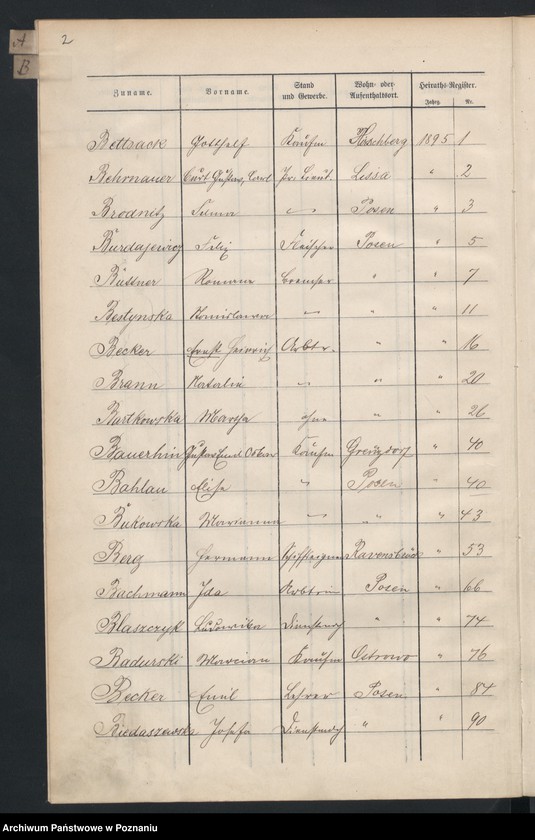 A 2
B
Zuname. Vorname. Stand und Gewerbe. Wohn- oder Aufenthaltsort. Heiraths-Register. Jahrg. Nr.
Bettsack Gotthelf Kaufm Hirschberg 1895 1
Behrnauer Curt Gustav, Carl Pr. Lieut. Lissa " 2
Brodnitz Selma — Posen " 3
Burdajewicz Felix Fleischer Posen " 5
Büttner Romann " " 7
Bestynska Stanislawa — " " 11
Becker Ernst Heinrich Arbtr. " " 16
Brann Natalie — " " 20
Bartkowska Martha ohne " " 26
Bauerhin Gustav Emil Oskar Kaufm " 40
Bahlau Elise " Posen " 40
Bukowska Marianna — " " 43
Berg Hermann Schiffseigner " 53
Bachmann Ida Arbtrin Posen " 66
Blaszczyk Ludowika Dienstmdch " " 74
Badurski Marcian Kaufm Ostrowo " 76
Becker Emil Lehrer Posen " 84
Biedaszewska Josefa Dienstmdch " " 90
Archiwum Państwowe w Poznaniu